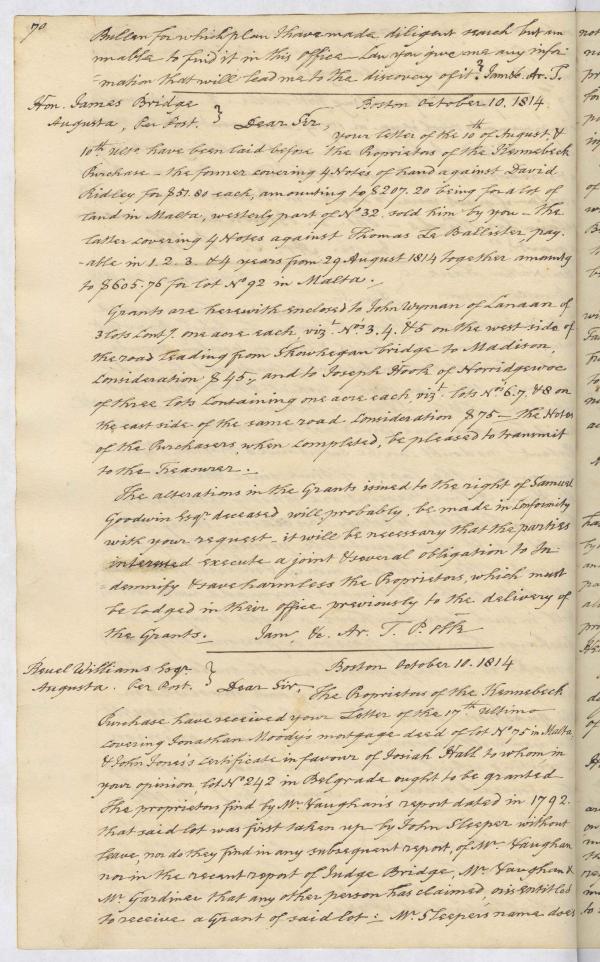 70
Bullen for which plan I have made diligent search but am
unable to find it in this office Can you give me any infor-
=mation that will lead me to the discovery of it? I am &c. Ar. T.
Hon. James Bridge
Augusta, Per Post. } Boston October 10. 1814
Dear Sir,
your letter of the 10th of August &
10th ulto have been laid before the Proprietors of the Kennebeck
Purchase – the former covering 4 Notes of hand against David
Ridley for $51.80 each, amounting to $207.20 being for a lot of
land in Malta, westerly part of No 32, sold him by you – the
latter covering 4 Notes against Thomas Le Ballister, pay-
-able in 1. 2. 3. & 4 years from 29 August 1814 together amountg
to $605.76 for lot No 92 in Malta.
Grants are herewith enclosed to John Wyman of Canaan of
3 lots Contg. one acre each, vizt. Nos 3. 4. & 5 on the west side of
the road leading from Skowhegan bridge to Madison,
Consideration $45., and to Joseph Hook of Norridgewoc
of three lots Containing one acre each vizt. lots Nos 6. 7. & 8 on
the east side of the same road Consideration $75 – the Notes
of the Purchasers, when completed, be pleased to transmit
to the Treasurer.
The alterations in the Grants issued to the right of Samuel
Goodwin Esqr. deceased, will, probably, be made in Conformity
with your request – it will be necessary that the parties
interested execute a joint & several obligation to In-
=demnify & save harmless the Proprietors, which must
be lodged in their office previously to the delivery of
the Grants. I am, &c. Ar. T. P. Clk
Reuel Williams Esqr.
Augusta. Per Post. } Boston October 10. 1814
Dear Sir, The Proprietors of the Kennebeck
Purchase have received your Letter of the 17th ultimo
covering Jonathan Moody's mortgage deed of lot No 75 in Malta
& John Jones's Certificate in favour of Josiah Hall to whom in
your opinion lot No 242 in Belgrade ought to be granted
The proprietors find by Mr. Vaughan's report dated in 1792.
that said lot was first taken up by John Sleeper without
leave, nor do they find in any subsequent report of Mr. Vaughan
nor in the recent report of Judge Bridge, Mr. Vaughan &
Mr. Gardiner that any other person has claimed, or is entitled
to receive a Grant of said lot: Mr. Sleeper's name does